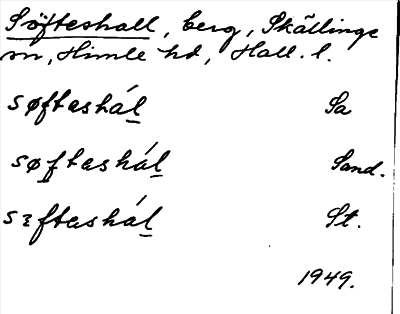 Söfteshall, berg, Skällinge
sn, Himle hd, Hall. l.
søftashál Sa
søftashál Sand.
sɛftashál St.
1949.